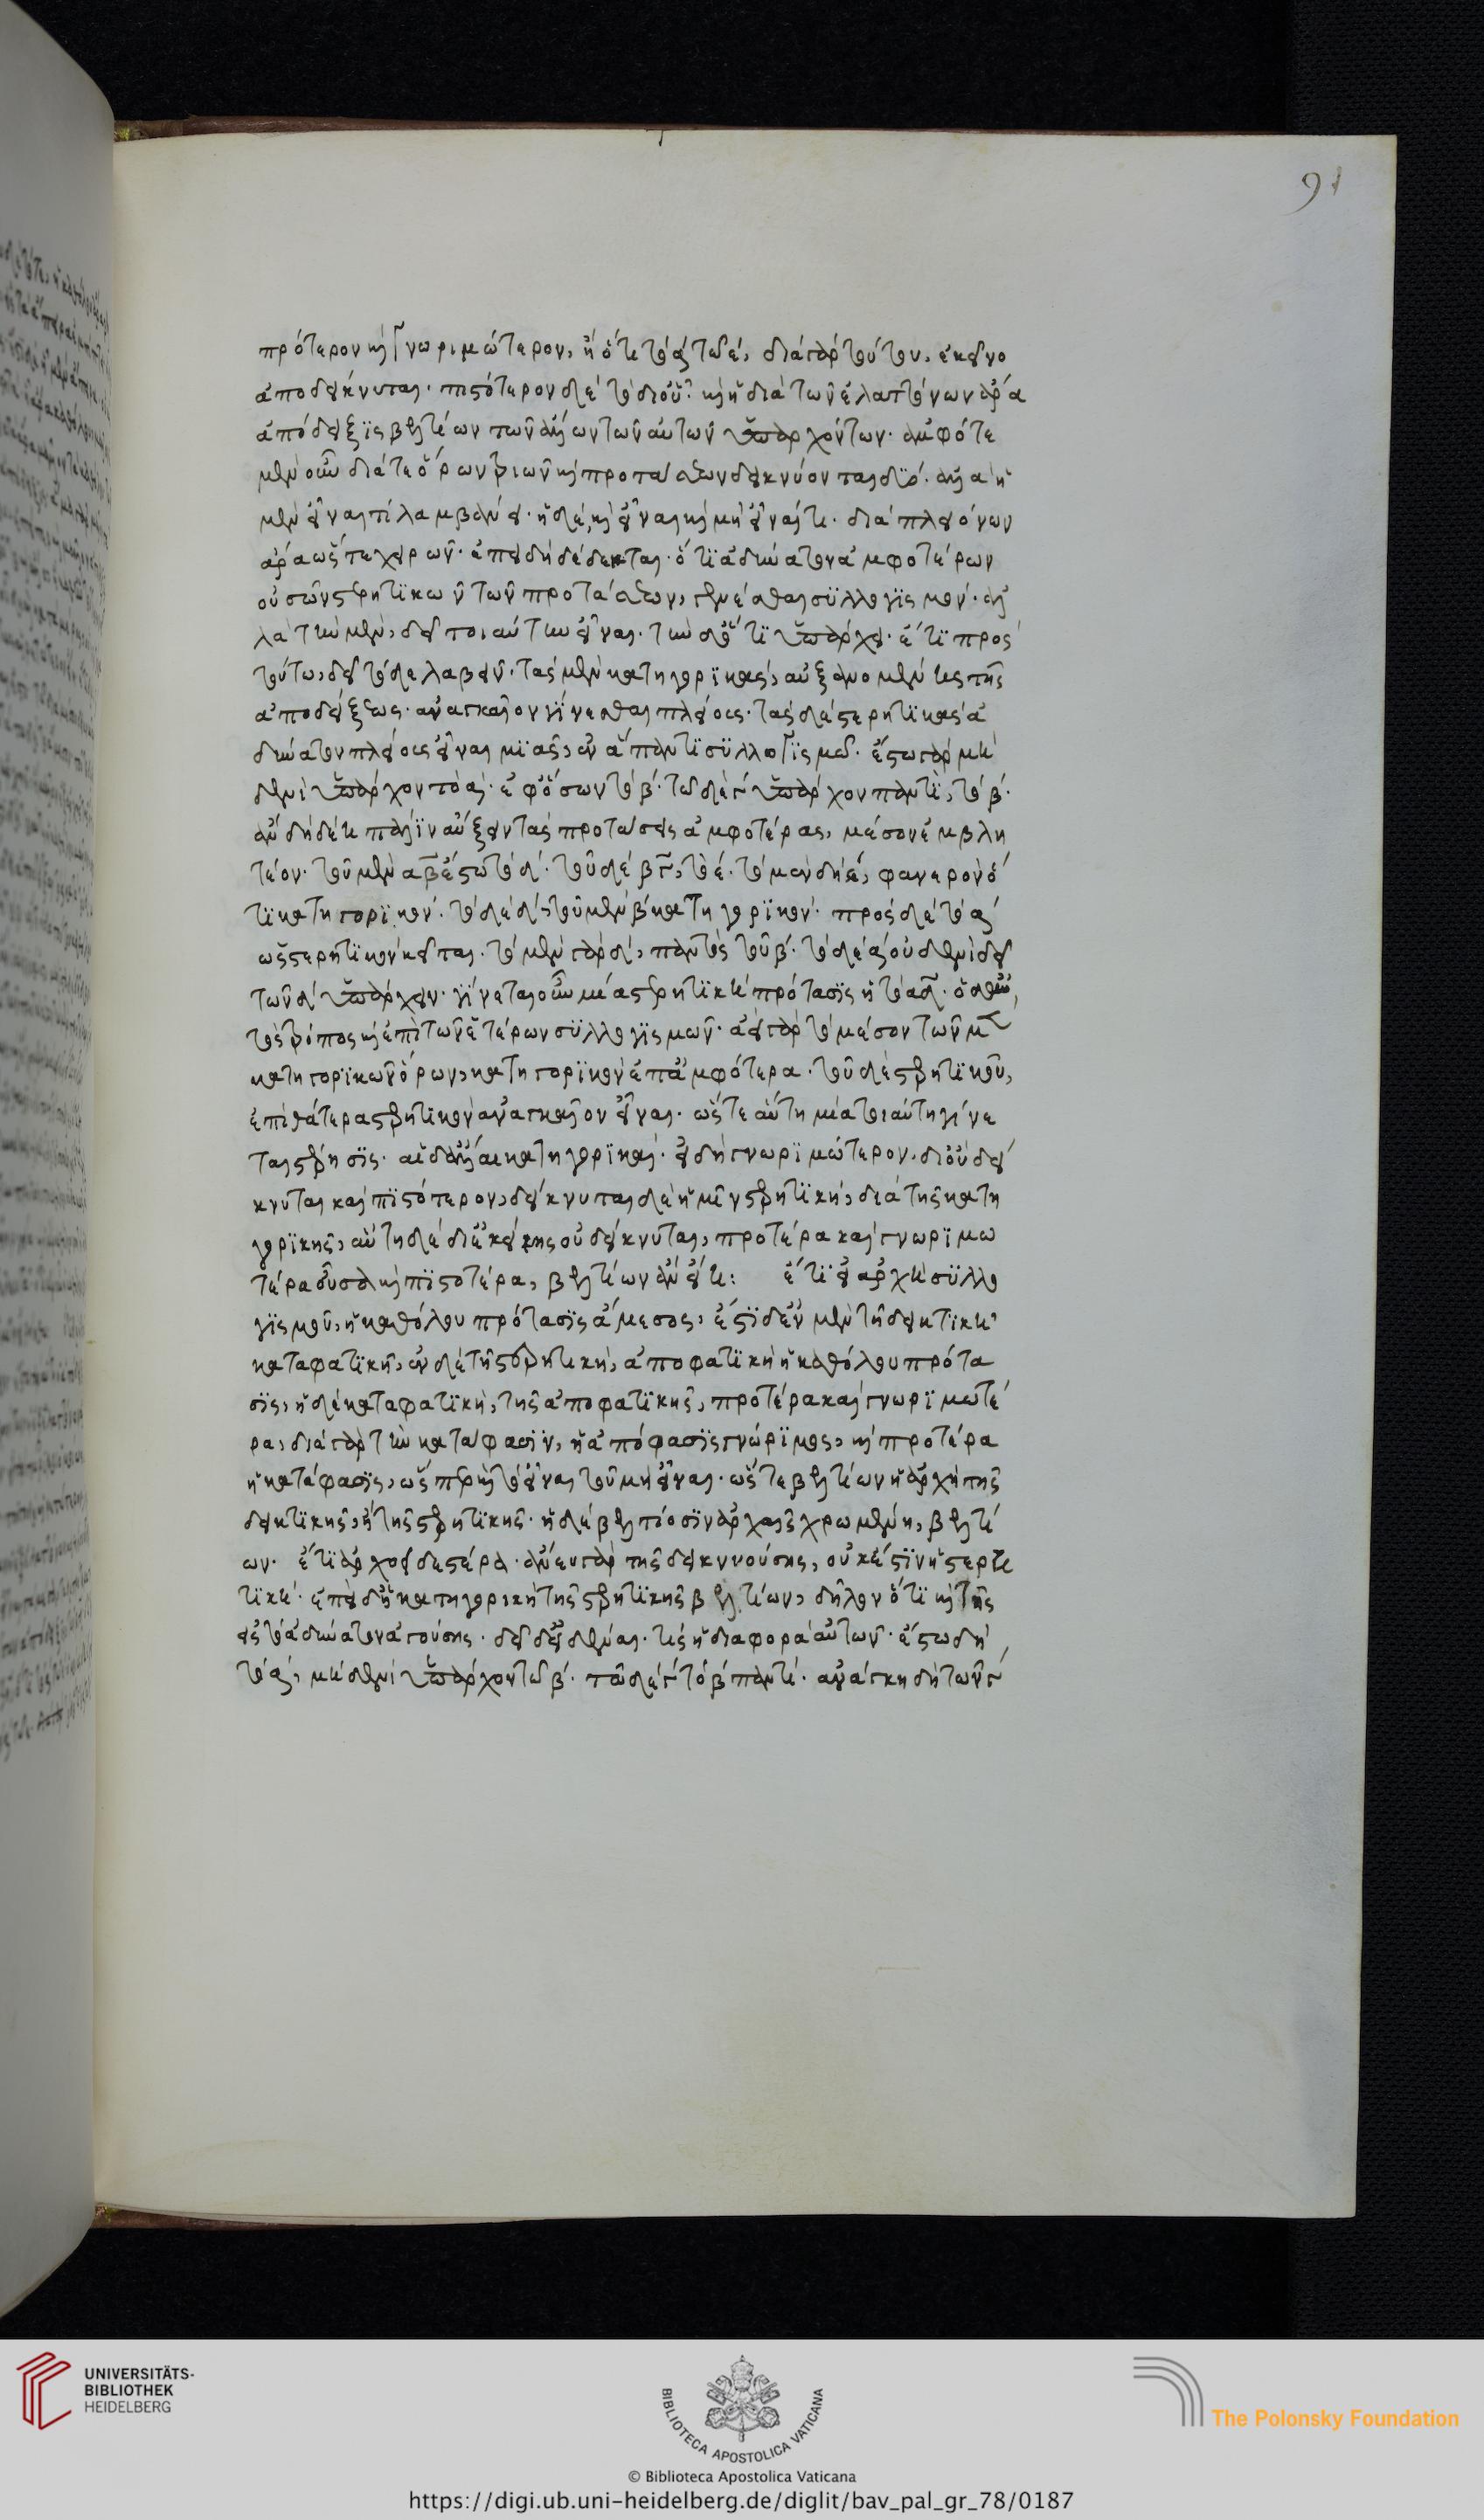 πρότερον καὶ γνωριμώτερον, ἢ ὅτι τὸ α τῷ ε, διὰ γὰρ τούτου, ἐκεῖνο
ἀποδείκνυται. πιστότερον δὲ τὸ δι' οὗ. καὶ ἡ διὰ τῶν ἐλαττόνων ἄρα
ἀπόδειξις βελτίων τῶν ἄλλων τῶν αὐτῶν ὑπαρχόντων. ἀμφότε
μὲν οὖν διά τε ὅρων τριῶν καὶ προτάσεων δείκνυονται δύο. ἀλλὰ ἡ
μὲν εἶναι τί λαμβάνει. ἡ δὲ, καὶ εἶναι καὶ μὴ εἶναί τι. διὰ πλειόνων
ἄρα ὥστε χείρων. ἐπειδὴ δέδεικται. ὅτι ἀδύνατον ἀμφοτέρων
οὐσῶν στερητικῶν τῶν προτάσεων, γενέσθαι συλλογισμόν. ἀλ
λὰ τὴν μὲν, δεῖ τοιαύτην εἶναι. τὴν δ' ὅτι ὑπάρχει. ἔτι πρὸς
τούτω, δεῖ τόδε λαβεῖν. τὰς μὲν κατηγορικὰς, αὐξανομένης τῆς
ἀποδείξεως. ἀναγκαῖον γίνεσθαι πλείους. τὰς δὲ στερητικὰς ἀ
δύνατον πλείους εἶναι μιᾶς, ἐν ἅπαντι συλλογισμῷ. ἔστω γὰρ μη
δενὶ ὑπάρχον τὸ α. ἐφ' ὅσων τὸ β. τῷ δὲ γ ὑπάρχον παντὶ, τὸ β.
ἂν δὴ δέῃ πάλιν αὔξειν τὰς προτάσεις ἀμφοτέρας, μέσον ἐμβλη
τέον. τοῦ μὲν αβ ἔστω τὸ δ. τοῦ δὲ βγ, τὸ ε. τὸ μὲν δὴ ε, φανερὸν ὅ
τι κατηγορικόν. τὸ δὲ δ, τοῦ μὲν β κατηγορικόν. πρὸς δὲ τὸ α
ὡς στερητικὸν κεῖται. τὸ μὲν γὰρ δ, παντὸς τοῦ β. τὸ δὲ α οὐδενὶ δεῖ
τῶν δ ὑπάρχειν. γίνεται οὖν μία στερητικὴ πρότασις ἡ τὸ αδ. ὁ δ' αὐ
τὸς τρόπος καὶ ἐπὶ τῶν ἑτέρων συλλογισμῶν. ἀεὶ γὰρ τὸ μέσον τῶν μὲν
κατηγορικῶν ὅρων, κατηγορικὸν ἐπ' ἀμφότερα. τοῦ δὲ στερητικοῦ,
ἐπὶ θάτερα στερητικὸν ἀναγκαῖον εἶναι. ὥστε αὕτη μία τοιαύτη γίνε
ται στέρησις. αἱ δ' ἄλλαι κατηγορικαί. εἰ δὴ γνωριμώτερον, δι' οὗ δεί
κνυται καὶ πιστότερον, δείκνυται δὲ ἡ μὲν στερητικὴ, διὰ τῆς κατη
γορικῆς, αὕτη δὲ δι' ἐκείνης οὐ δείκνυται, προτέρα καὶ γνωριμω
τέρα οὖσα καὶ πιστοτέρα, βελτίων ἂν εἴη: ἔτι εἰ ἀρχὴ συλλο
γισμοῦ, ἡ καθόλου πρότασις ἄμεσος, ἔστι δ' ἐν μὲν τῇ δεικτικῇ
καταφατικὴ, ἐν δὲ τῇ στερητικῇ, ἀποφατικὴ ἡ καθόλου πρότα
σις, ἡ δὲ καταφατικὴ, τῆς ἀποφατικῆς, προτέρα καὶ γνωριμωτέ
ρα, διὰ γὰρ τὴν κατάφασιν, ἡ ἀπόφασις γνώριμος, καὶ προτέρα
ἡ κατάφασις, ὥσπερ καὶ τὸ εἶναι τοῦ μὴ εἶναι. ὥστε βελτίων ἡ ἀρχὴ τῆς
δεικτικῆς, ἢ τῆς στερητικῆς. ἡ δὲ βελτίοσιν ἀρχαῖς χρωμένη, βελτί
ων. ἔτι ἀρχοειδεστέρα. ἄνευ γὰρ τῆς δεικνυούσης, οὐκ ἔστιν ἡ στερη
τική. ἐπεὶ δ' ἡ κατηγορικὴ τῆς στερητικῆς βελτίων, δῆλον ὅτι καὶ τῆς
εἰς τὸ ἀδύνατον ἀγούσης. δεῖ δ' εἰδέναι. τίς ἡ διαφορὰ αὐτῶν. ἔστω δὴ
τὸ α, μηδενὶ ὑπάρχον τῷ β. τῷ δὲ γ τὸ β παντί. ἀνάγκη δὴ τῶν γ
91
UNIVERSITÄTS-
BIBLIOTHEK
HEIDELBERG
BIBLIOTECA APOSTOLICA VATICANA
The Polonsky Foundation
© Biblioteca Apostolica Vaticana
https://digi.ub.uni-heidelberg.de/diglit/bav_pal_gr_78/0187